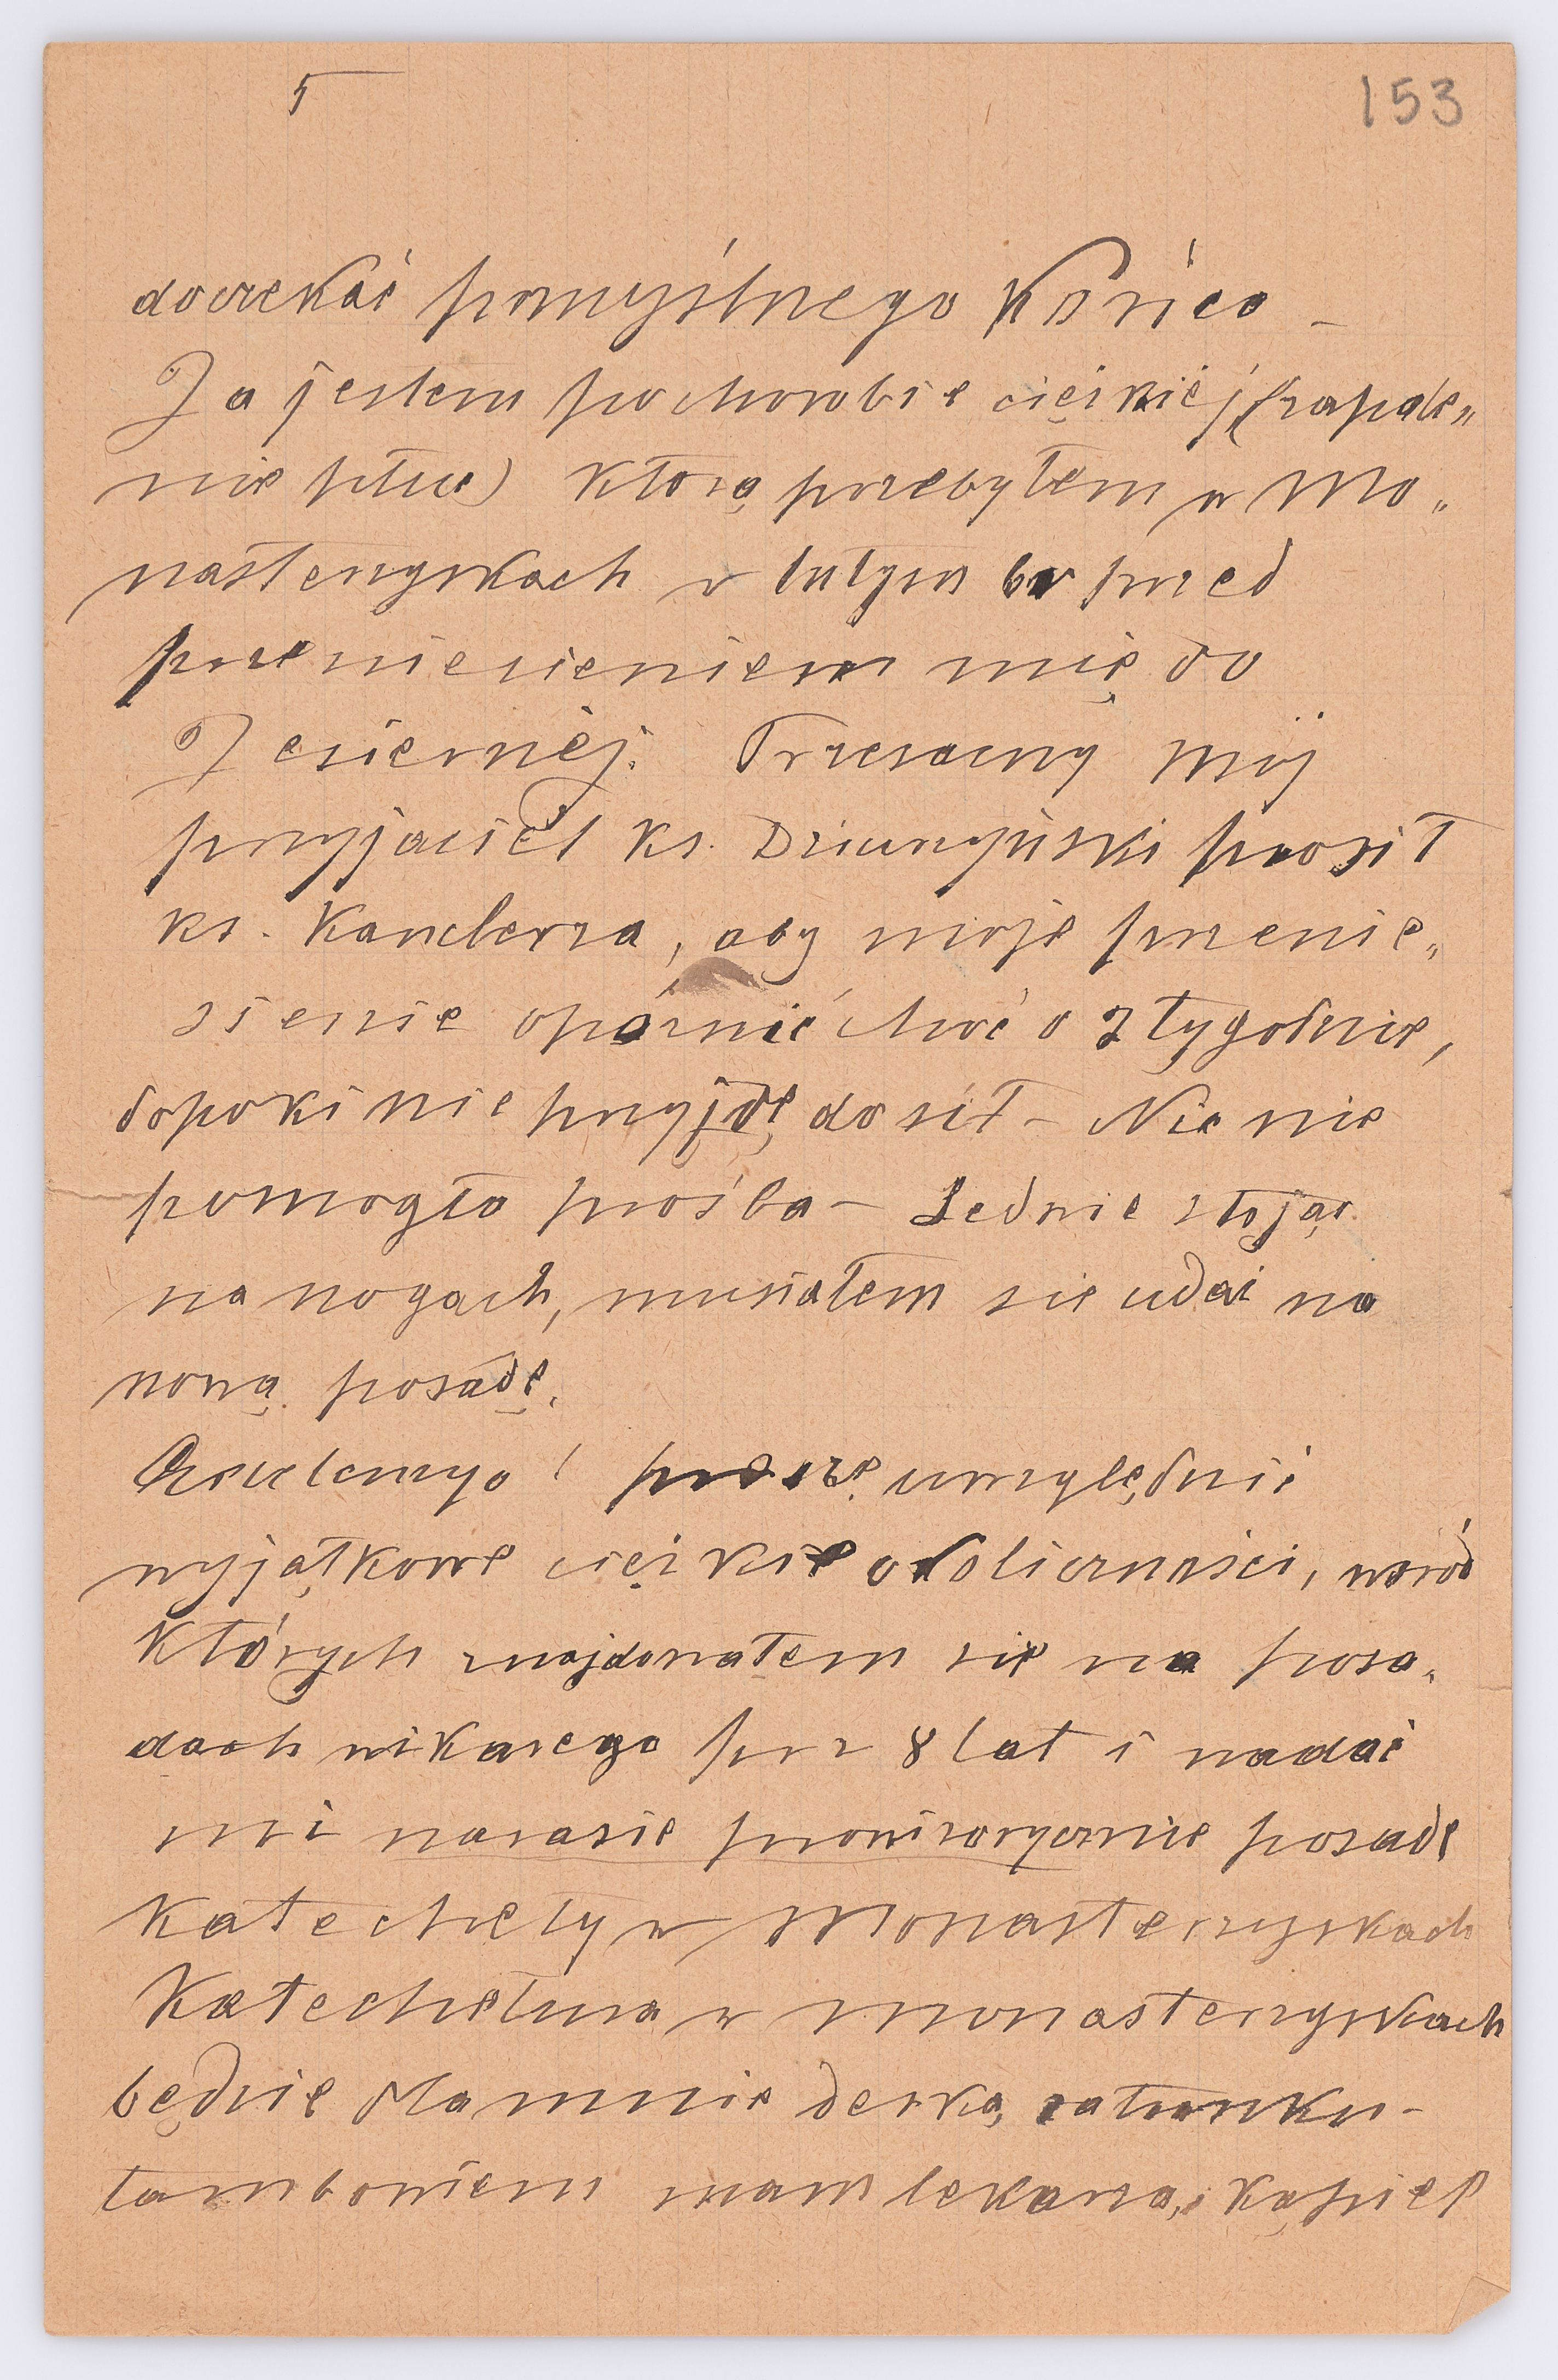 5
153
doczekać pomyślnego Końca –
Ja jestem po chorobie ciężkiéj (zapale„
nie płuc) którą przebyłem w Mo„
nasterzyskach w lutym br przed
przeniesieniem mię do
Jeziernéj. Przezacny mój
przyjaciel ks. Dziurzyński prosił
ks. Kanclerza, aby moje przenie„
sienie opóźnić choć o 2 tygodnie,
dopoki nie przyjdę do sił – Nic nie
pomogła prośba – Ledwie stojąc
na nogach, musiałem sie udać na
nową posadę.
proszę uwzględnić
wyjątkowe ciężkie okoliczności, wsród
których znajdowałem sie na posa„
dach wikarego prz 8 lat i nadać
mi narasie prowizorycznie posadę
Katechety w Monasterzyskach
Katechetura w monasterzyskach
będzie dla mnie deską ratunku –
tam bowiem mam lekarza, i kąpiel